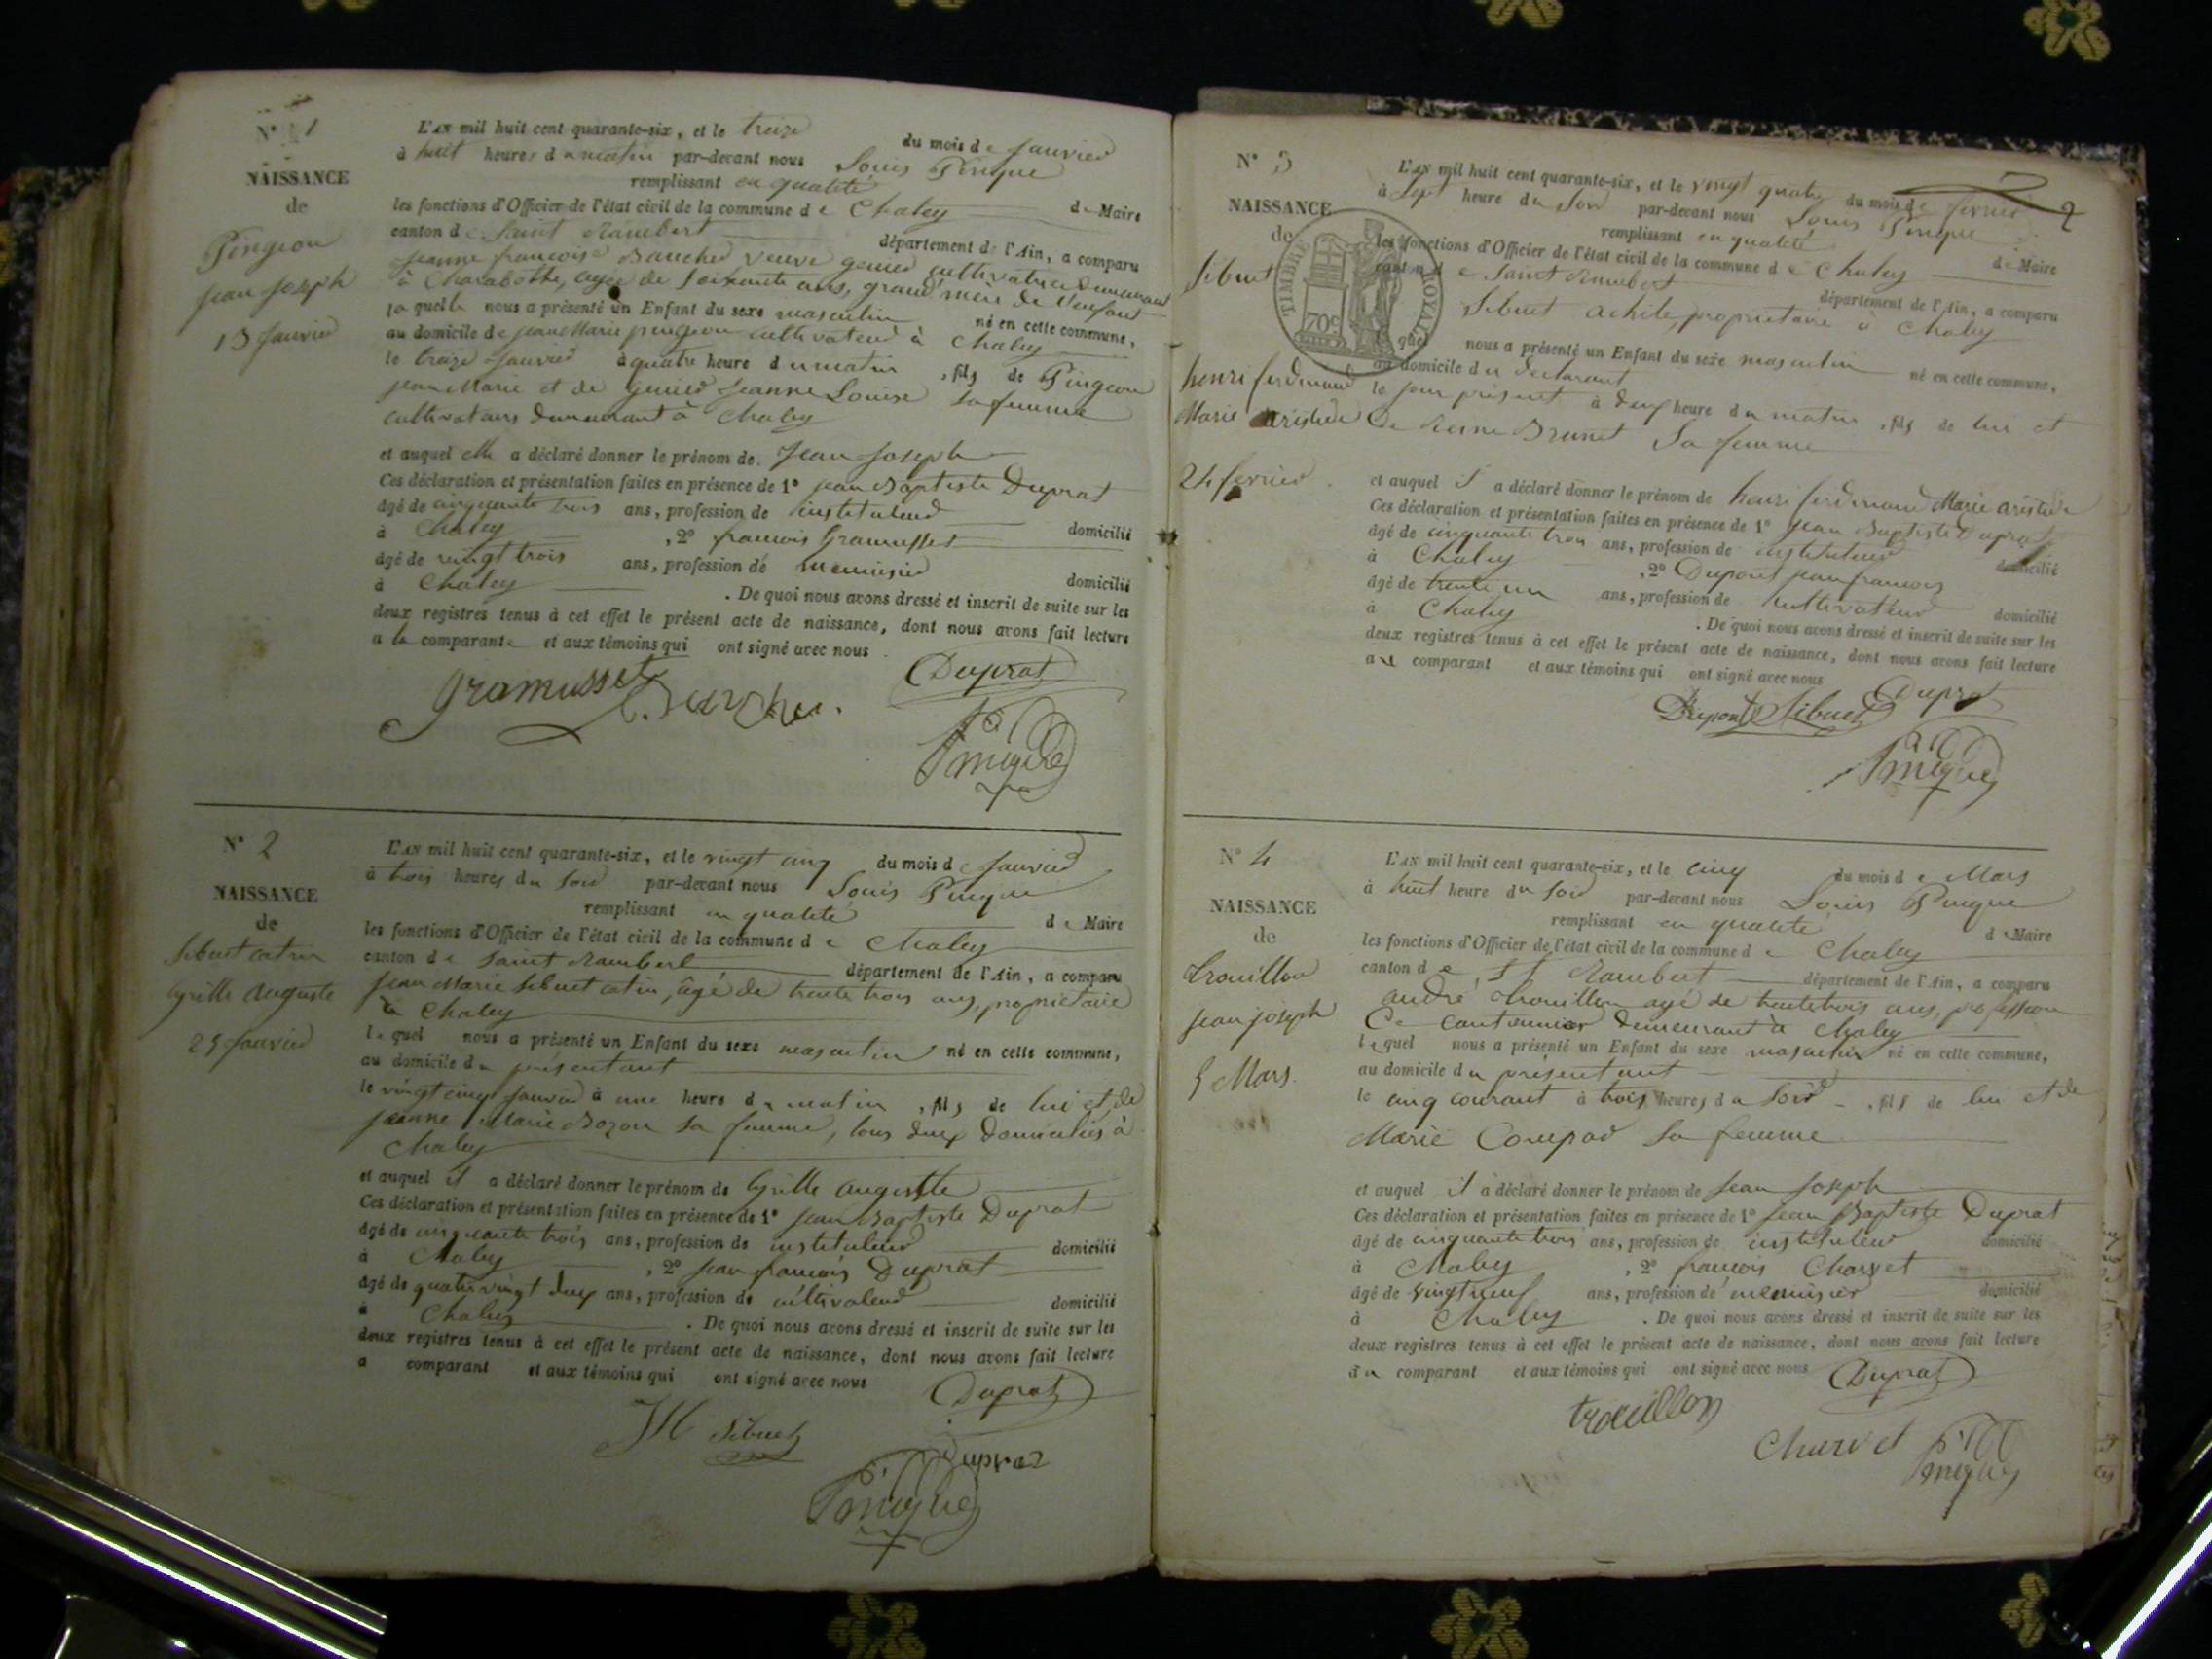 N° 1
NAISSANCE
de
Pingeon
jean Joseph
13 Janvier
L'AN mil huit cent quarante-six, et le treize du mois de Janvier
à huit heures du matin par-devant nous Louis Pingue
remplissant en qualité de Maire
les fonctions d'Officier de l'état civil de la commune de Chaley
canton de Saint Rambert département de l'Ain, a comparu
jeanne françoise veuve genier cultivatrice demeurant
à Charabotte, agée de soixante ans, grand'mère de l'enfant
laquelle nous a présenté un Enfant du sexe masculin né en cette commune,
au domicile de jean Marie pingeon cultivateur à Chaley
le treize Janvier à quatre heure du matin, fils de Pingeon
jean Marie et de genier Jeanne Louise sa femme
cultivateurs demeurant à Chaley
et auquel elle a déclaré donner le prénom de Jean Joseph
Ces déclaration et présentation faites en présence de 1° jean Baptiste Duprat
âgé de cinquante trois ans, profession de instituteur domicilié
à Chaley, 2° francois Gramusset
âgé de vingt trois ans, profession de menuisier domicilié
à Chaley. De quoi nous avons dressé et inscrit de suite sur les
deux registres tenus à cet effet le présent acte de naissance, dont nous avons fait lecture
a la comparante et aux témoins qui ont signé avec nous
Duprat
gramusset
Pingue
N° 2
NAISSANCE
de
Sibuet catin
Cyrille Auguste
25 Janvier
L'AN mil huit cent quarante-six, et le vingt cinq du mois de Janvier
à trois heures du soir par-devant nous Louis Pingue
remplissant en qualité de Maire
les fonctions d'Officier de l'état civil de la commune de Chaley
canton de Saint Rambert département de l'Ain, a comparu
jean Marie Sibuet catin, âgé de trente trois ans, propriétaire
à Chaley
lequel nous a présenté un Enfant du sexe masculin né en cette commune,
au domicile du présentant
le vingt cinq Janvier à une heure du matin, fils de lui et de
jeanne Marie Bozon sa femme, tous deux domiciliés à
Chaley
et auquel il a déclaré donner le prénom de Cyrille auguste
Ces déclaration et présentation faites en présence de 1° jean Baptiste Duprat
âgé de cinquante trois ans, profession de instituteur domicilié
à Chaley, 2° jean françois Duprat
âgé de quatre vingt deux ans, profession de cultivateur domicilié
à Chaley. De quoi nous avons dressé et inscrit de suite sur les
deux registres tenus à cet effet le présent acte de naissance, dont nous avons fait lecture
a comparant et aux témoins qui ont signé avec nous
Duprat
JM Sibuet
Duprat
Pingue
2
N° 3
NAISSANCE
de
Sibuet
henri ferdinand
Marie aristide
24 fevrier
TIMBRE ROYAL
70c
L'AN mil huit cent quarante-six, et le vingt quatre du mois de fevrier
à Sept heure du soir par-devant nous Louis Pingue
remplissant en qualité de Maire
les fonctions d'Officier de l'état civil de la commune de Chaley
canton de Saint Rambert département de l'Ain, a comparu
Sibuet achile, propriétaire à Chaley
quel nous a présenté un Enfant du sexe masculin né en cette commune,
au domicile du declarant
le jour présent à deux heure du matin, fils de lui et
de Brunet sa femme
et auquel il a déclaré donner le prénom de henri ferdinand Marie aristide
Ces déclaration et présentation faites en présence de 1° jean Baptiste Duprat
âgé de cinquante trois ans, profession de instituteur domicilié
à Chaley, 2° Dupont jean francois
âgé de trente un ans, profession de cultivateur domicilié
à Chaley. De quoi nous avons dressé et inscrit de suite sur les
deux registres tenus à cet effet le présent acte de naissance, dont nous avons fait lecture
au comparant et aux témoins qui ont signé avec nous
Duprat
Dupont Sibuet
Pingue
N° 4
NAISSANCE
de
trouillon
jean joseph
5 Mars.
L'AN mil huit cent quarante-six, et le cinq du mois de Mars
à huit heure du soir par-devant nous Louis Pingue
remplissant en qualité de Maire
les fonctions d'Officier de l'état civil de la commune de Chaley
canton de St Rambert département de l'Ain, a comparu
andré trouillon agé de trente trois ans, profession
de cantonnier demeurant à Chaley
lequel nous a présenté un Enfant du sexe masculin né en cette commune,
au domicile du présentant
le cinq courant à trois heures du soir, fils de lui et de
Marie sa femme
et auquel il a déclaré donner le prénom de jean Joseph
Ces déclaration et présentation faites en présence de 1° jean Baptiste Duprat
âgé de cinquante trois ans, profession de instituteur domicilié
à Chaley, 2° francois Charvet
âgé de vingt neuf ans, profession de menuisier domicilié
à Chaley. De quoi nous avons dressé et inscrit de suite sur les
deux registres tenus à cet effet le présent acte de naissance, dont nous avons fait lecture
au comparant et aux témoins qui ont signé avec nous
Duprat
trouillon
Charvet
Pingue